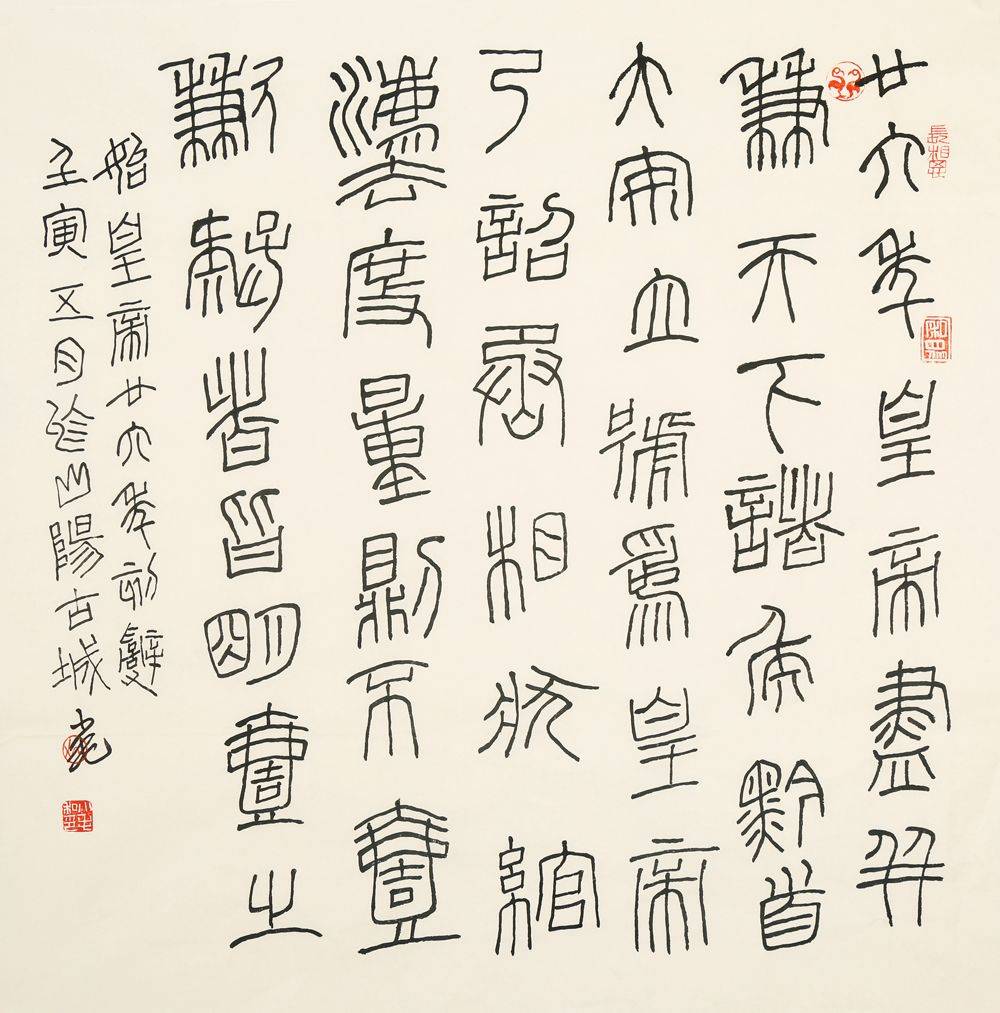 廿六年皇帝盡并
兼天下諸侯黔首
大安立號為皇帝
乃詔丞相狀綰
灋度量則不壹
歉疑者皆明壹之
始皇帝廿六年辭
壬寅五月於山陽古城